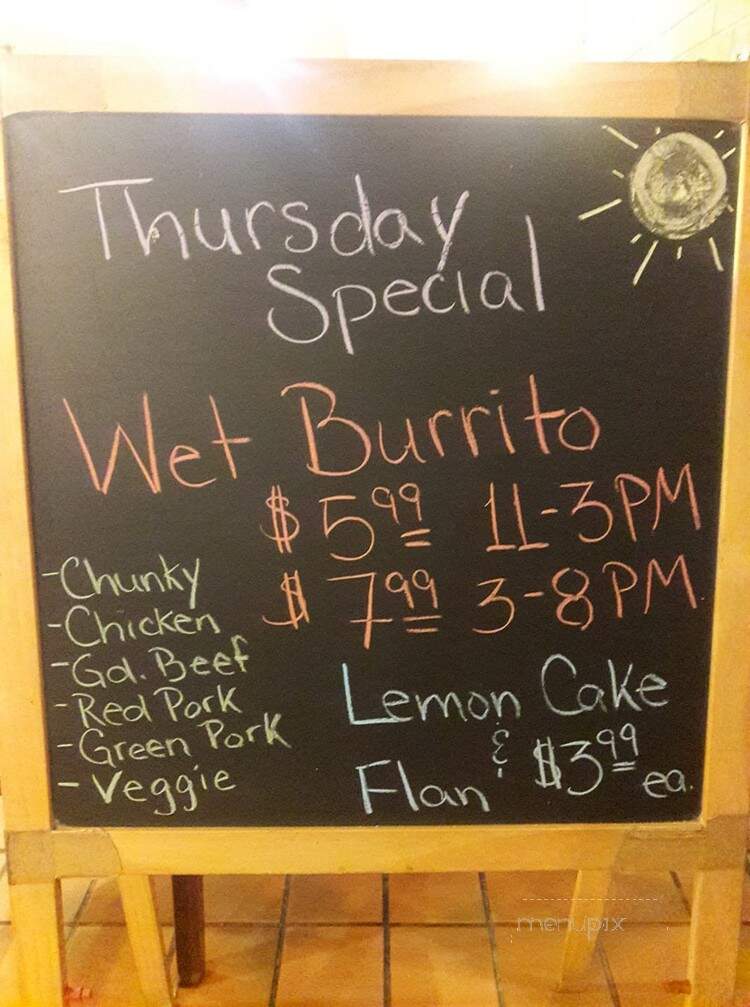 Thursday
Special
Wet Burrito
$5.99 11-3PM
$7.99 3-8PM
-Chunky
-Chicken
-Gd. Beef
-Red Pork
-Green Pork
-Veggie
Lemon Cake
&
Flan $3.99 ea.
menupix